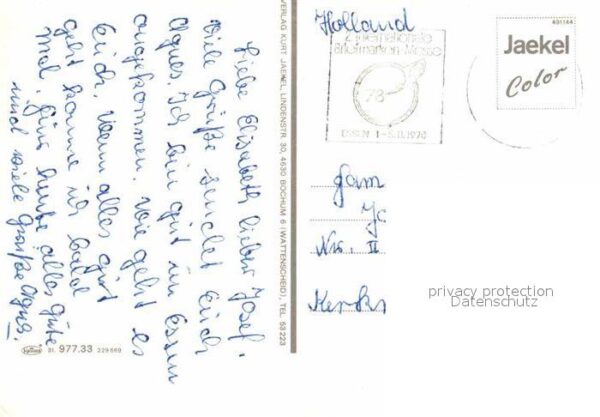 Liebe Elisabeth lieber Josef.
Viele Grüße sendet Euch
Agnes. Ich bin gut in Essen
angekommen. Wie geht es
Euch, wenn alles gut
geht komme ich bald
mal. Für heute alles Gute
und viele Grüße Agnes.
VERLAG KURT JAEKEL, LINDENSTR. 30, 4630 BOCHUM 6 (WATTENSCHEID), TEL. 53 223
977.33 229 669
Holland
2. Internationale
Briefmarken-Messe
78
ESSEN
491144
Jaekel
Color
Fam
Nr. II
privacy protection
Datenschutz